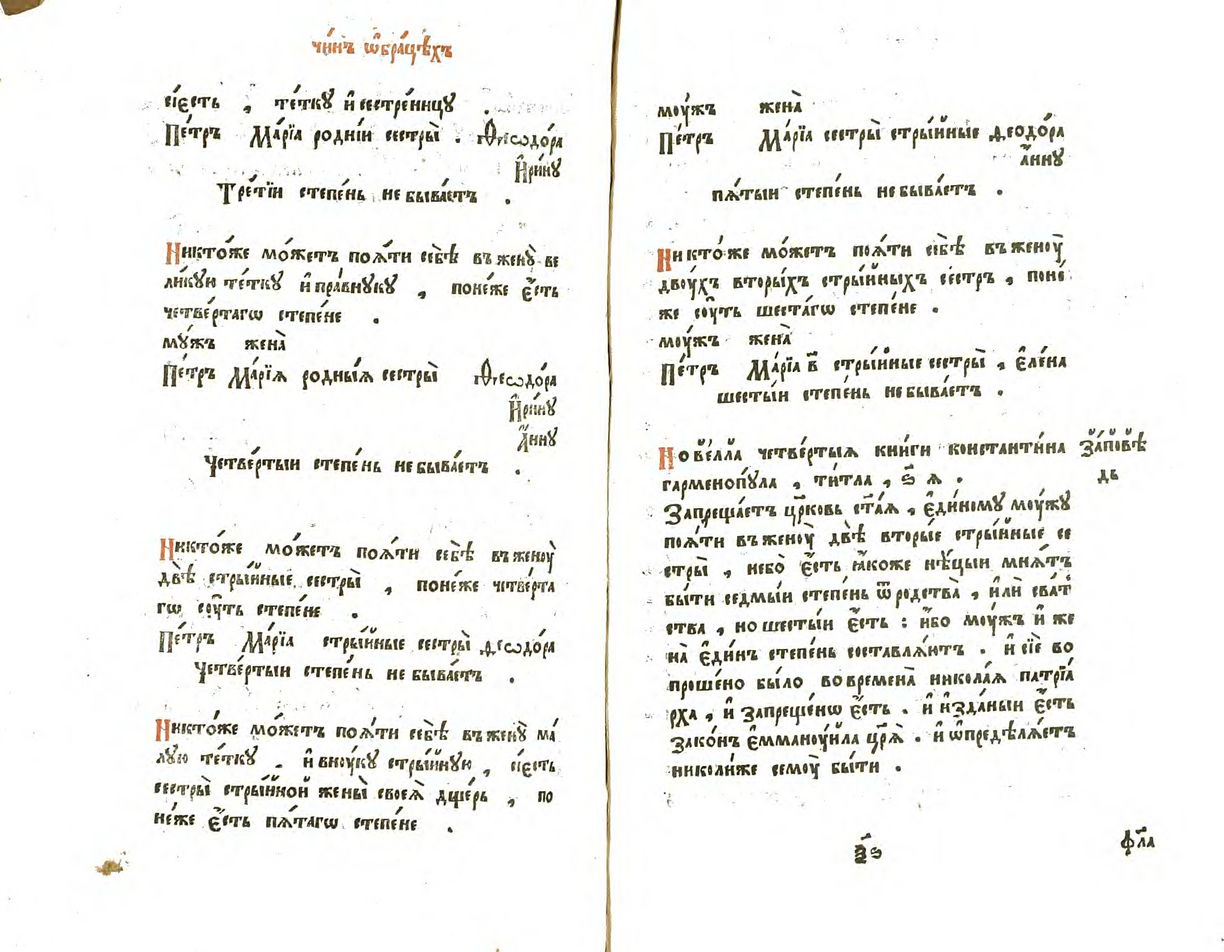 чи́нъ ѡ҆бра́цѣхъ
сіе́сть , те́ткꙋ и҆ сестре́ницꙋ .
Пе́тръ Ма́рїа родні́и сестры̀ . Ѳео́дѡра
И҆ри́нꙋ
Тре́тїи степе́нь не быва́етъ .
Никто́же мо́жетъ поѧ́ти себѣ̀ въ женꙋ̀ ве
ли́кꙋю те́ткꙋ и҆ пра́внꙋкꙋ , поне́же є҆́сть
четве́ртагѡ степе́не .
мꙋ́жъ жена̀
Пе́тръ Ма́рїѧ родны́ѧ сестры̀ Ѳеѡдо́ра
И҆ри́нꙋ
А҆́ннꙋ
Четве́ртыи степе́нь не быва́етъ .
Никто́же мо́жетъ поѧ́ти себѣ̀ въ женоу̀
двѣ̀ стры́йные сестры̀ , поне́же четве́рта
гѡ сꙋ́ть степе́не .
Пе́тръ Ма́рїа стры́йные сестры̀ Ѳеодѡ́ра
Четве́ртыи степе́нь не быва́етъ .
Никто́же мо́жетъ поѧ́ти себѣ̀ въ женꙋ̀ ма́
лꙋю те́ткꙋ . и҆ внꙋ́кꙋ стры́йнꙋю , сіе́сть
сестры̀ стры́йной жены̀ своеѧ̀ дще́рь , по
не́же є҆́сть пѧ́тагѡ степе́не .
моу́жъ жена̀
Пе́тръ Ма́рїа сестры̀ стры́йные Ѳеодо́ра
а҆́ннꙋ
пѧ́тыи степе́нь не быва́етъ .
Никто́же мо́жетъ поѧ́ти себѣ̀ въ женоу̀
двоу́хъ вторы́хъ стры́йныхъ се́стръ , поне́
же соу́ть шеста́гѡ степе́не .
моу́жъ жена̀
Пе́тръ Ма́рїа в҃ стры́йные сестры̀ , є҆ле́на
шесты́и степе́нь не быва́етъ .
Нове́лла четве́ртыѧ кни́ги константи́на за́повѣ
гармено́пꙋла , ти́тла , ѕ҃ ѧ . дь
Запреща́етъ цр҃ковь ст҃а́ѧ , є҆ди́номꙋ моу́жꙋ
поѧ́ти въ женоу̀ двѣ̀ вторы́е стры́йные се
стры̀ , небо̀ є҆́сть ꙗ҆́коже нѣ́цыи мнѧ́тъ
бы́ти седмы́и степе́нь ѿ родства̀ , и҆лѝ сва́т
ства , но шесты́и є҆́сть : и҆́бо моу́жъ и҆ же
на̀ є҆ди́нъ степе́нь составлѧ́ютъ . и҆ сїѐ во
прошено̀ бы́ло во времена̀ никола́ѧ патрїа́
рха , и҆ запреще́нѡ є҆́сть . и҆ и҆зда́ныи є҆́сть
зако́нъ є҆ммано́уила цр҃ѧ̀ . и҆ ѡ҆предѣлѧ́етъ
николи́же семоу̀ бы́ти .
фл҃а